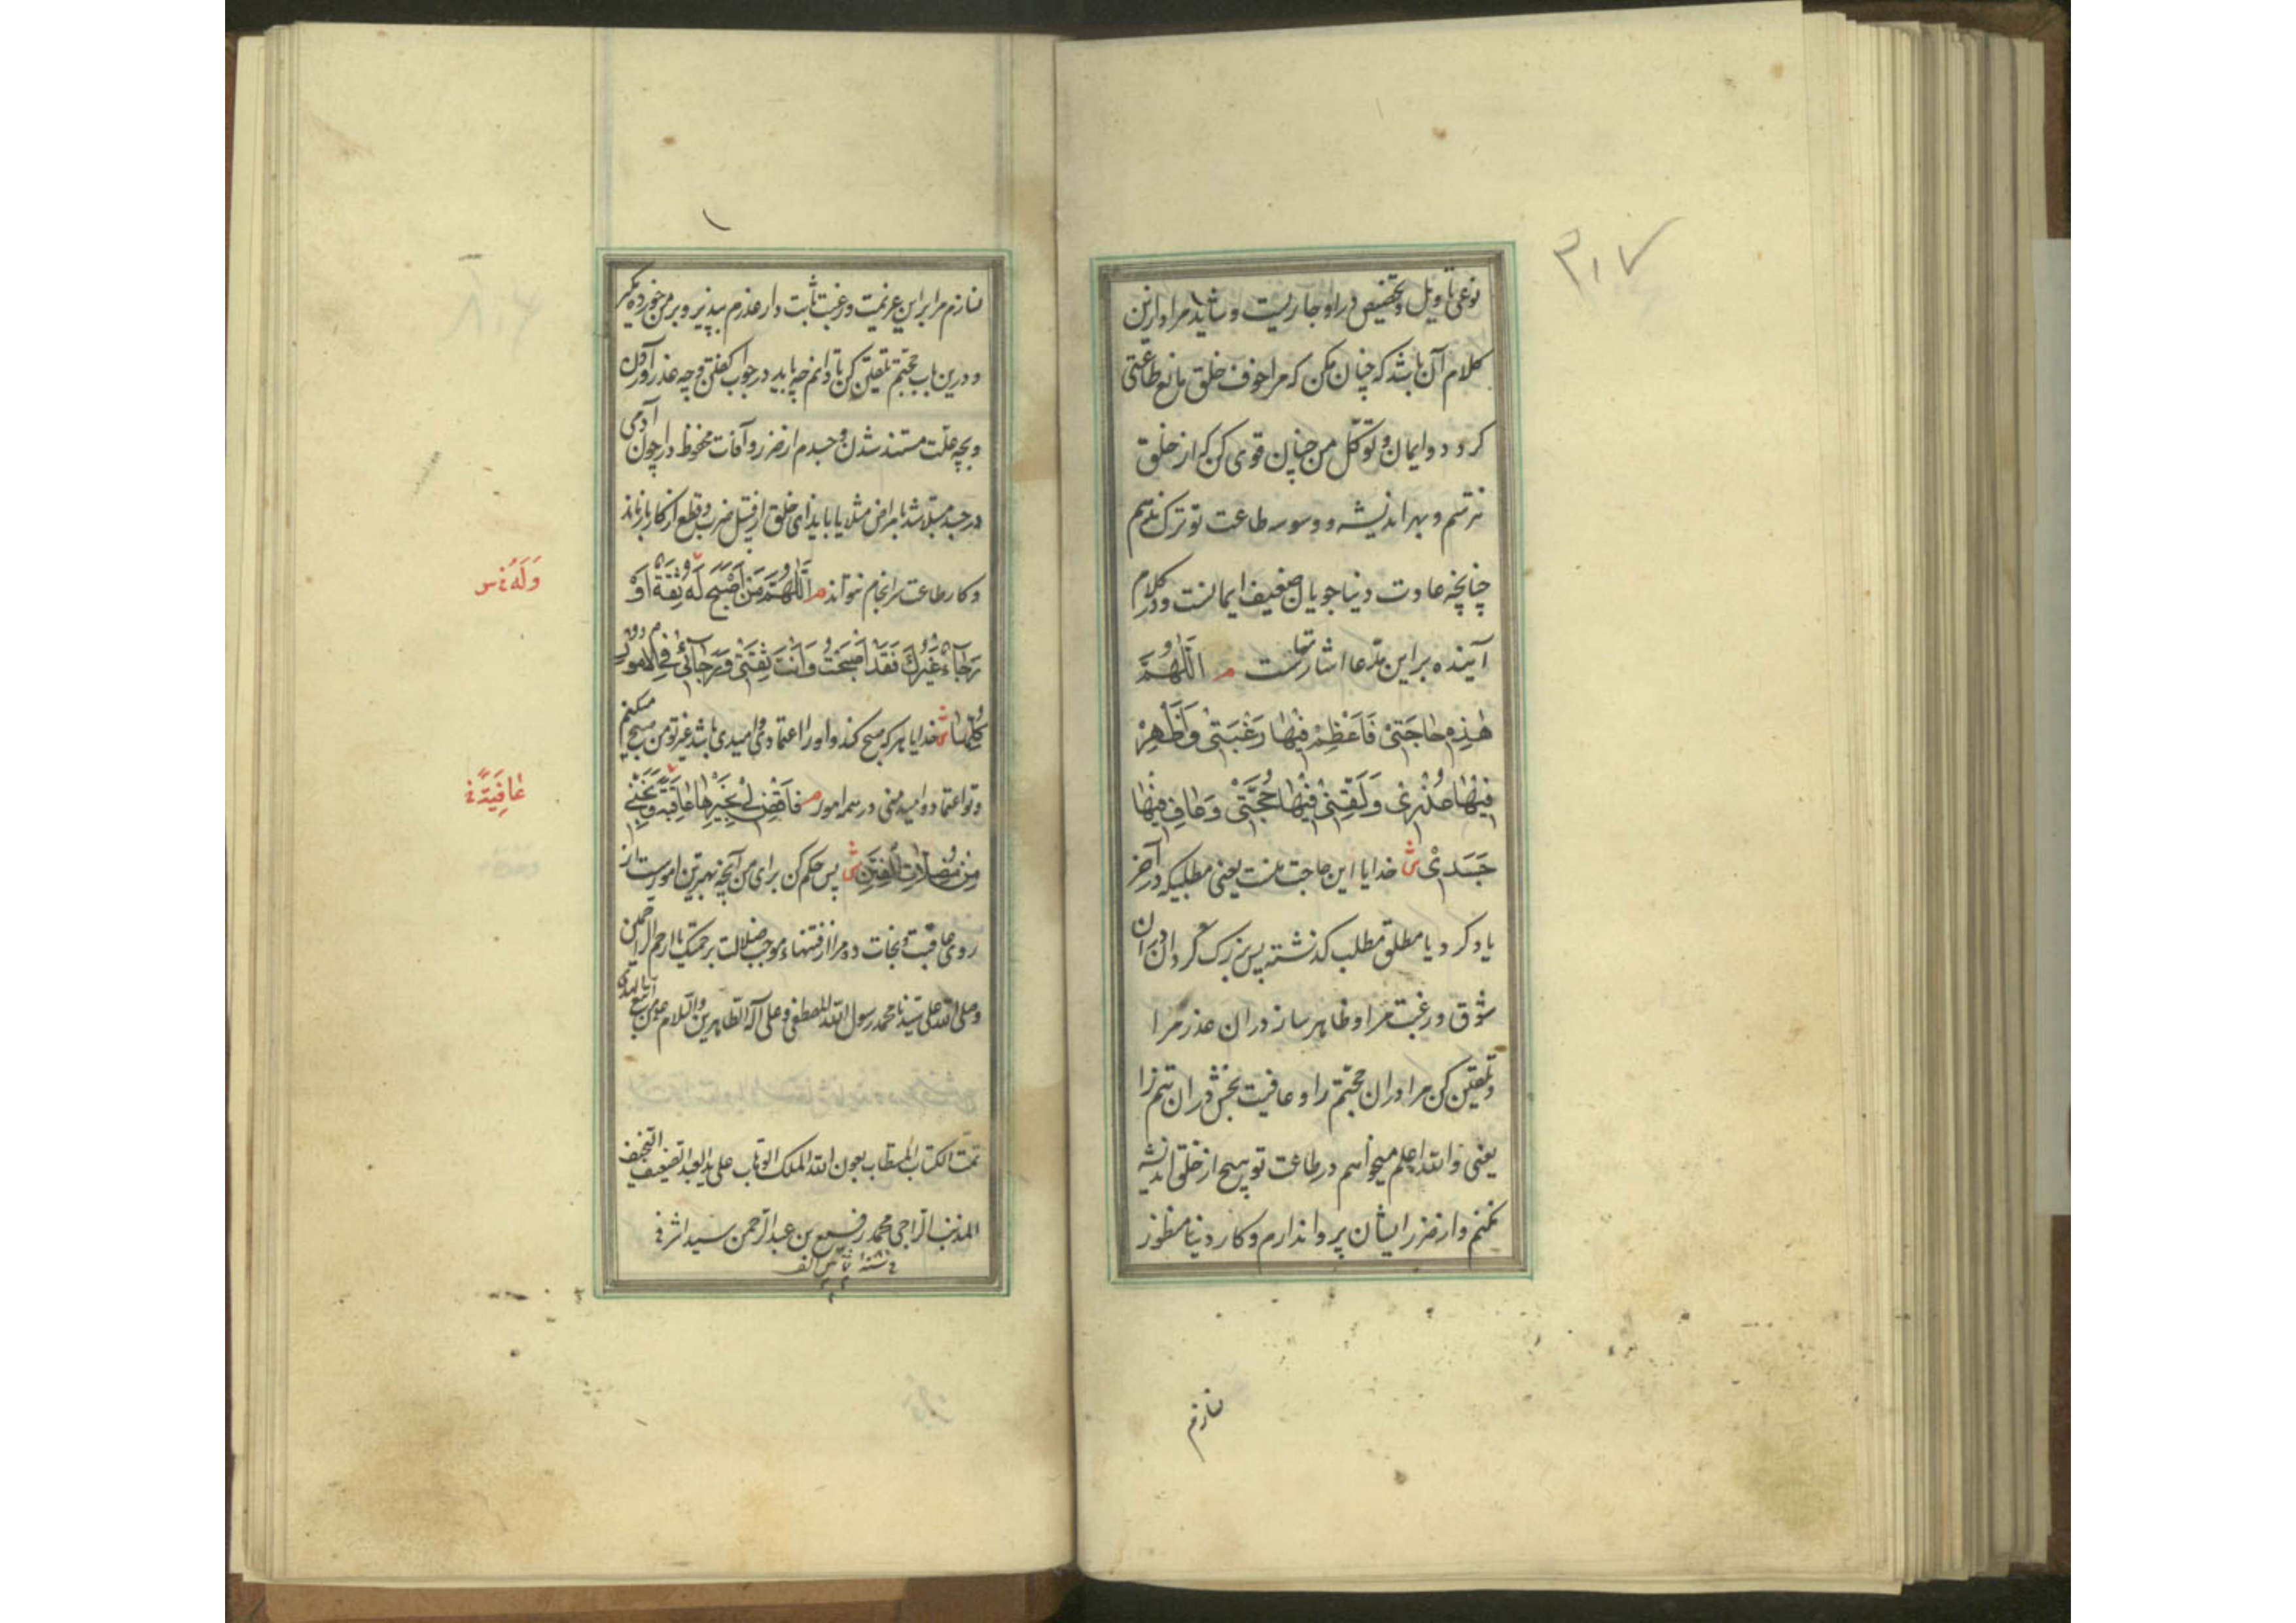 ۳۰۷
نوعی تاویل و تخصیص در او جاریست و شاید مراد ازین
کلام آن باشد که چنان مکن که مرا خوف خلق مانع طاعتی
کردد و ایمان و توکل من چنان قوی کن که از خلق
نترسم و بهر اندیشه و وسوسه طاعت تو ترک ندهم
چنانچه عادت دنیا جویان ضعیف ایمانست و در کلام
آینده بر این مدعا اشارتست م اللَّهُمَّ
هٰذِهِ حَاجَتِیْ فَاَعْظِمْ فِیْهَا رَغْبَتِیْ وَاَظْهِرْ
فِیْهَا عُذْرِیْ وَلَقِّنِیْ فِیْهَا حُجَّتِیْ وَعَافِ فِیْهَا
جَسَدِیْ ش خدایا این حاجت منست یعنی مطلبیکه در آخر
یاد کرد یا مطلق مطلب کذشته پس بزرک کردان در ان
شوق و رغبت مرا و ظاهر ساز در ان عذر مرا
و تلقین کن مرا در ان حجتم را و عافیت بخش در ان تنم را
یعنی والله اعلم میخواهم در طاعت تو هیچ از خلق اندیشه
نکنم و از ضرر ایشان پروا ندارم و کار دنیا منظور
نسازم
نسازم مرا بر این عزیمت و رغبت ثابت دار عذرم بپذیر و بر من خورده مکیر
و درین باب حجتم تلقین کن تا دانم چه باید در جواب کفتن و چه عذر آوردن
و بچه علت مستند شدن و جسدم از ضرر و آفات محفوظ دار چون آدمی
در جسد مبتلا شد بامراض مثلا یا بایذای خلق از قبیل ضرب و قطع از کار باز ماند
و کار طاعت سرانجام نتواند م اللَّهُمَّ مَنْ اَصْبَحَ لَهُ ثِقَةٌ اَوْ
وَلَهُ خ س
رَجَاءٌ غَیْرُكَ فَقَدْ اَصْبَحْتُ وَاَنْتَ ثِقَتِیْ وَرَجَائِیْ فِی الْاُمُورِ
كُلِّهَا ش خدایا هر که صبح کند و او را اعتماد و امیدی باشد غیر تو من صبح میکنم
و تو اعتماد و امید منی در همه امور م فَاقْضِ لِیْ بِخَیْرِهَا عَاقِبَةً وَنَجِّنِیْ
عَافِیَةً خ
مِنْ مُضِلَّاتِ الْفِتَنِ ش پس حکم کن برای من آنچه بهترین امورست از
روی عاقبت و نجات ده مرا از فتنهاء موجب ضلالت برحمتک یا ارحم الراحمین
و صلی الله علی سیدنا محمد رسول الله المصطفی و علی آله الطاهرین والسلام علی من اتبع الهدی
تمت الکتاب المستطاب بعون الله الملک الوهاب علی ید العبد الضعیف النحیف
المذنب الراجی محمد رفیع بن عبدالرحمن